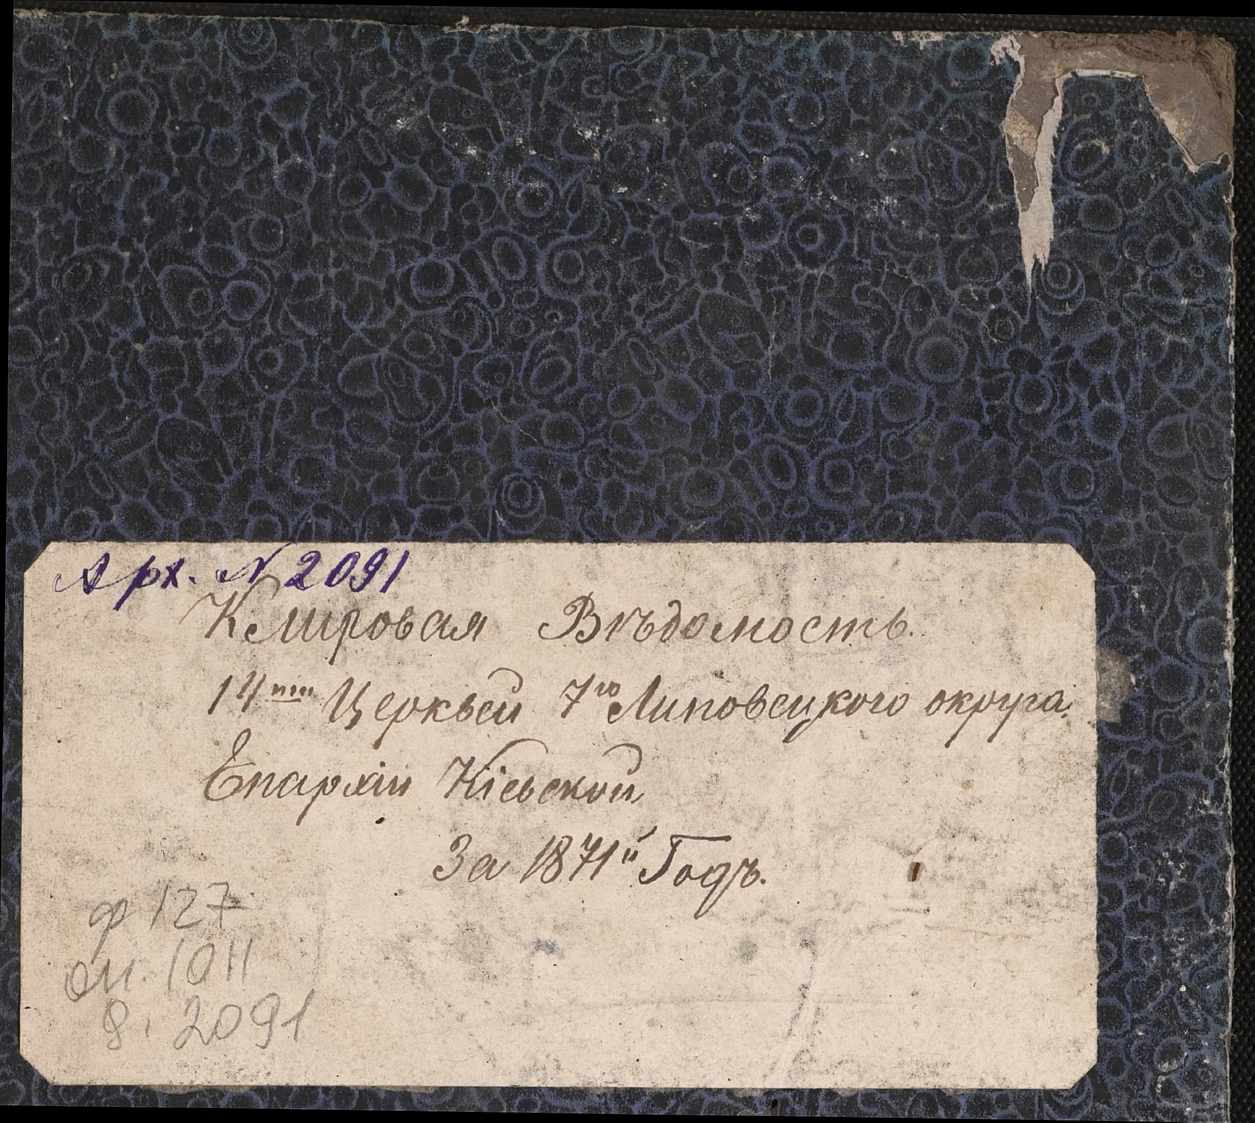 Арх. N 2091
Клировая Вѣдомость
14ти Церквей 7го Липовецкого округа
Епархіи Кіевской
За 1871й Годъ.
ф 127
оп. 1011
д. 2091